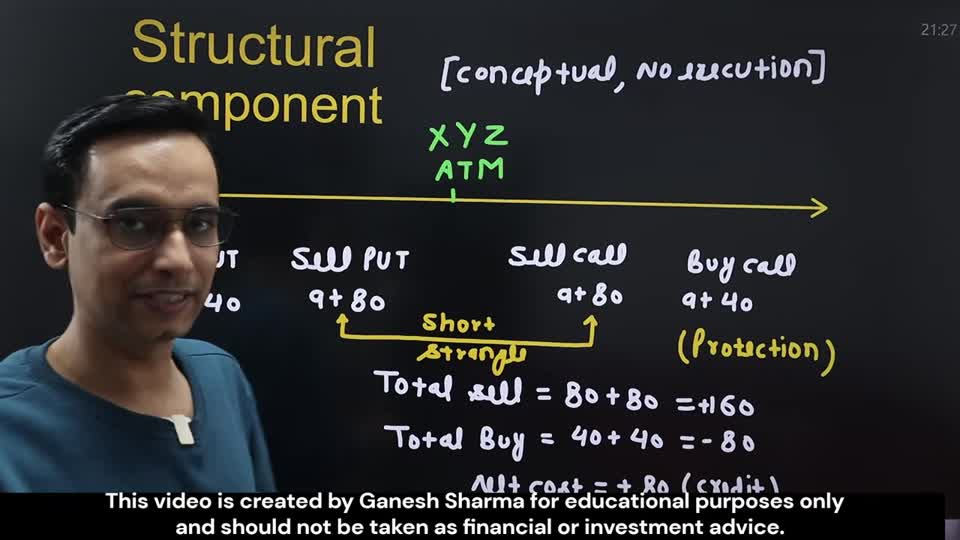 21:27
Structural
component
[conceptual, No execution]
XYZ
ATM
Sell PUT
Sell call
Buy call
40
at 80
at 80
at 40
Short
Strangle
(Protection)
Total sell = 80 + 80 = +160
Total Buy = 40 + 40 = - 80
Net cost = + 80 (credit)
This video is created by Ganesh Sharma for educational purposes only
and should not be taken as financial or investment advice.